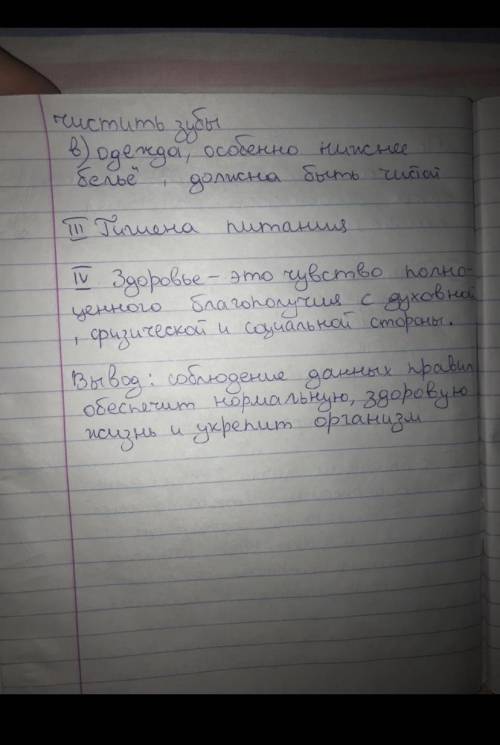 чистить зубы
в) одежда, особенно нижнее
бельё, должна быть чистой
III Гигиена питания
IV Здоровье – это чувство полно-
ценного благополучия с духовной
, физической и социальной стороны.
Вывод: соблюдение данных правил
обеспечит нормальную, здоровую
жизнь и укрепит организм